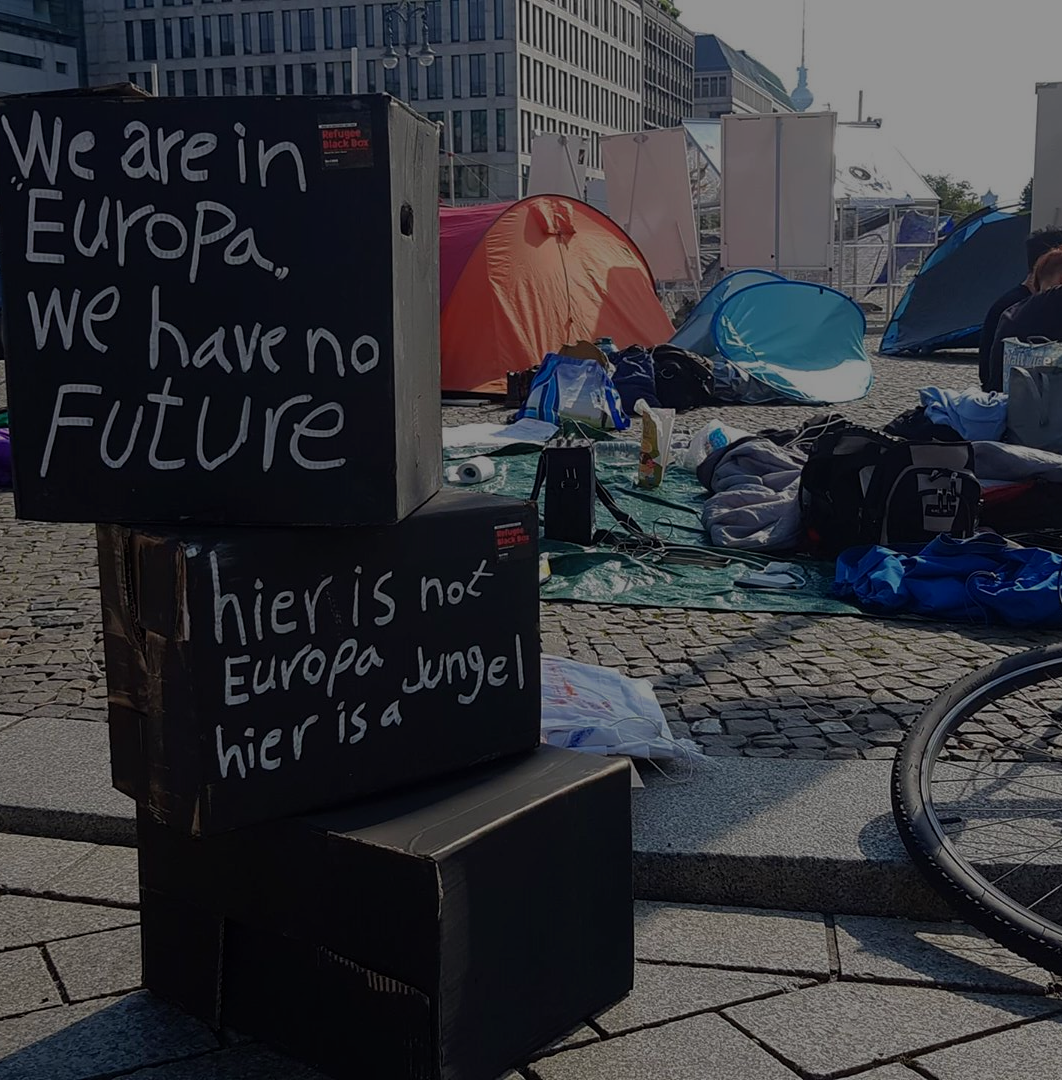 We are in
"Europa„
we have no
Future
Refugee
Black Box
hier is not
Europa Jungel
hier is a
Refugee
Black Box